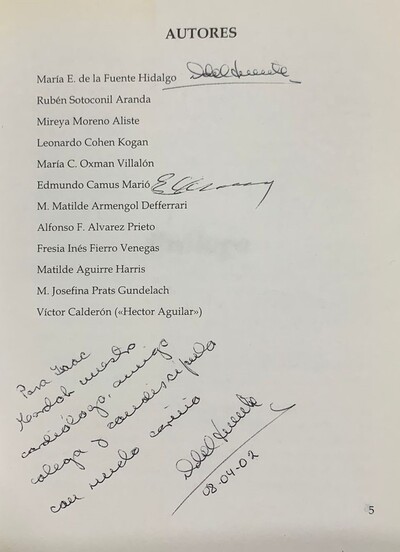 AUTORES
María E. de la Fuente Hidalgo
Rubén Sotoconil Aranda
Mireya Moreno Aliste
Leonardo Cohen Kogan
María C. Oxman Villalón
Edmundo Camus Marió
M. Matilde Armengol Defferrari
Alfonso F. Alvarez Prieto
Fresia Inés Fierro Venegas
Matilde Aguirre Harris
M. Josefina Prats Gundelach
Víctor Calderón («Hector Aguilar»)
Para Isaac
nuestro
cardiólogo, amigo
colega y condiscípulo
con mucho cariño
08-04-02
5